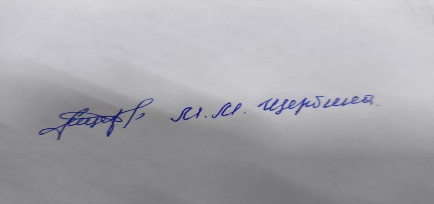 М.М. Щербина